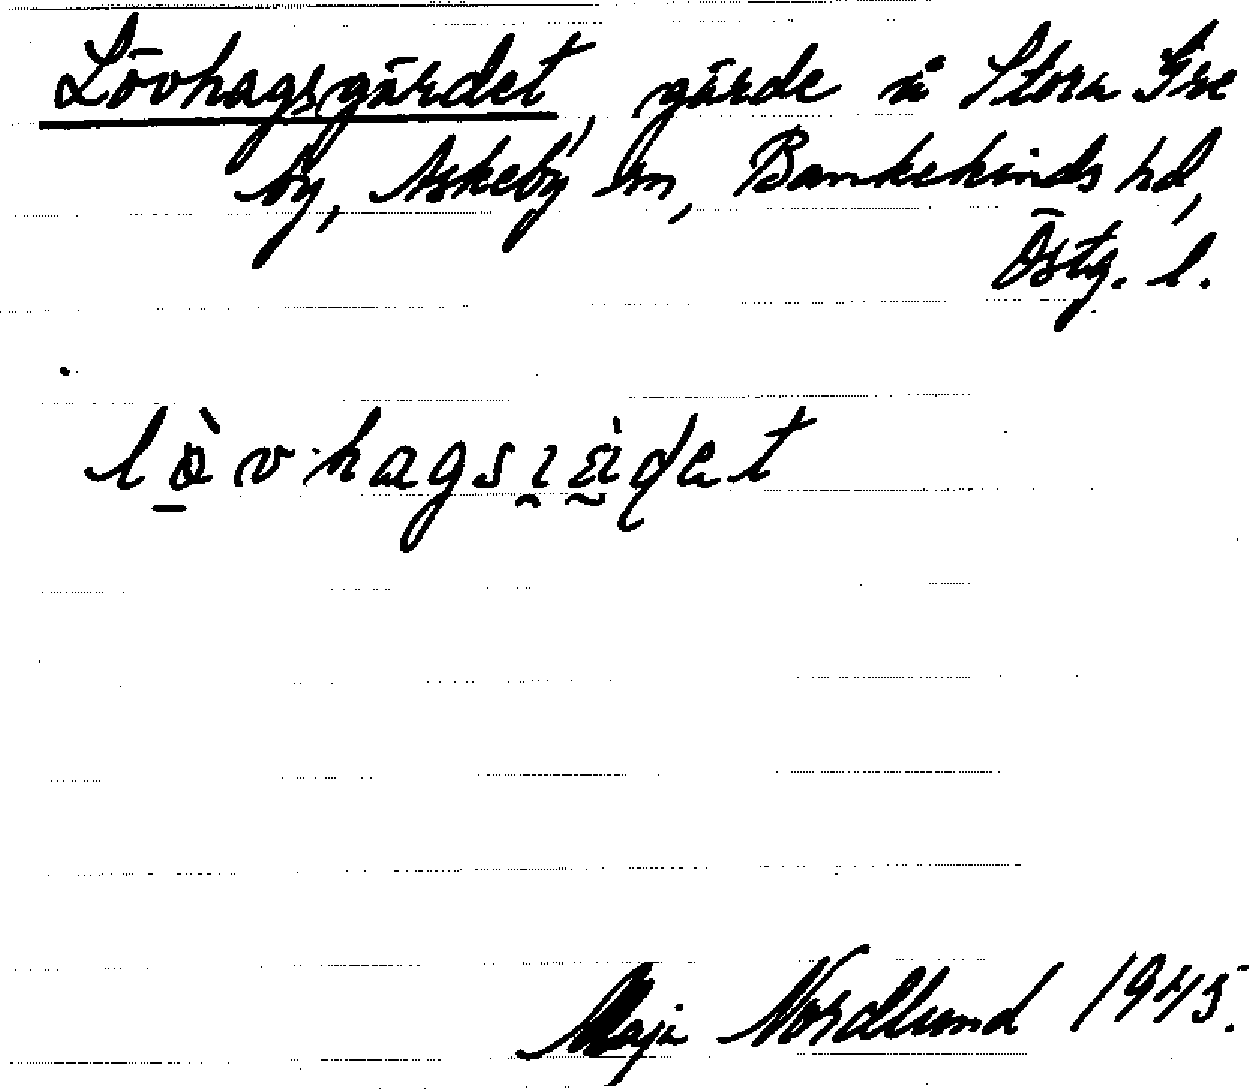 Lövhagsgärdet, gärde å Stora Gre
by, Askeby sn, Bankekinds hd,
Östg. l.
Maja Nordlund 1945.